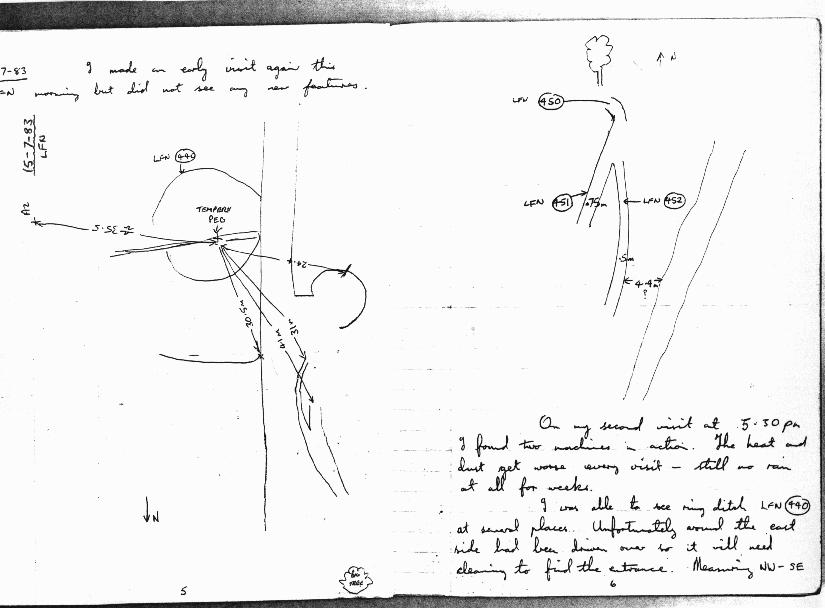 7-83 I made an early visit again this
FN morning but did not see any new features.
15-7-83
LFN
LFN 440
TEMPORY
PEG
A2
20.5m
41m
31m
↓N
BIG
TREE
5
↑ N
LFN 450
LFN 451
.75m
LFN 452
.5m
4.4m
?
On my second visit at 5.30 pm
I found two machines in action. The heat and
dust get worse every visit – still no rain
at all for weeks.
I was able to see ring ditch LFN 440
at several places. Unfortunately around the east
side had been driven over so it will need
cleaning to find the entrance. Measuring NW-SE
6